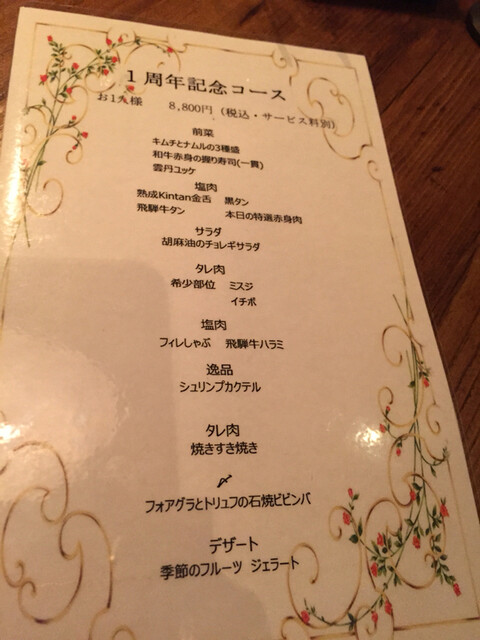 １周年記念コース
お1人様 8,800円（税込・サービス料別）
前菜
キムチとナムルの3種盛
和牛赤身の握り寿司(一貫)
雲丹ユッケ
塩肉
熟成Kintan金舌 黒タン
飛騨牛タン 本日の特選赤身肉
サラダ
胡麻油のチョレギサラダ
タレ肉
希少部位 ミスジ
イチボ
塩肉
フィレしゃぶ 飛騨牛ハラミ
逸品
シュリンプカクテル
タレ肉
焼きすき焼き
〆
フォアグラとトリュフの石焼ビビンバ
デザート
季節のフルーツ ジェラート